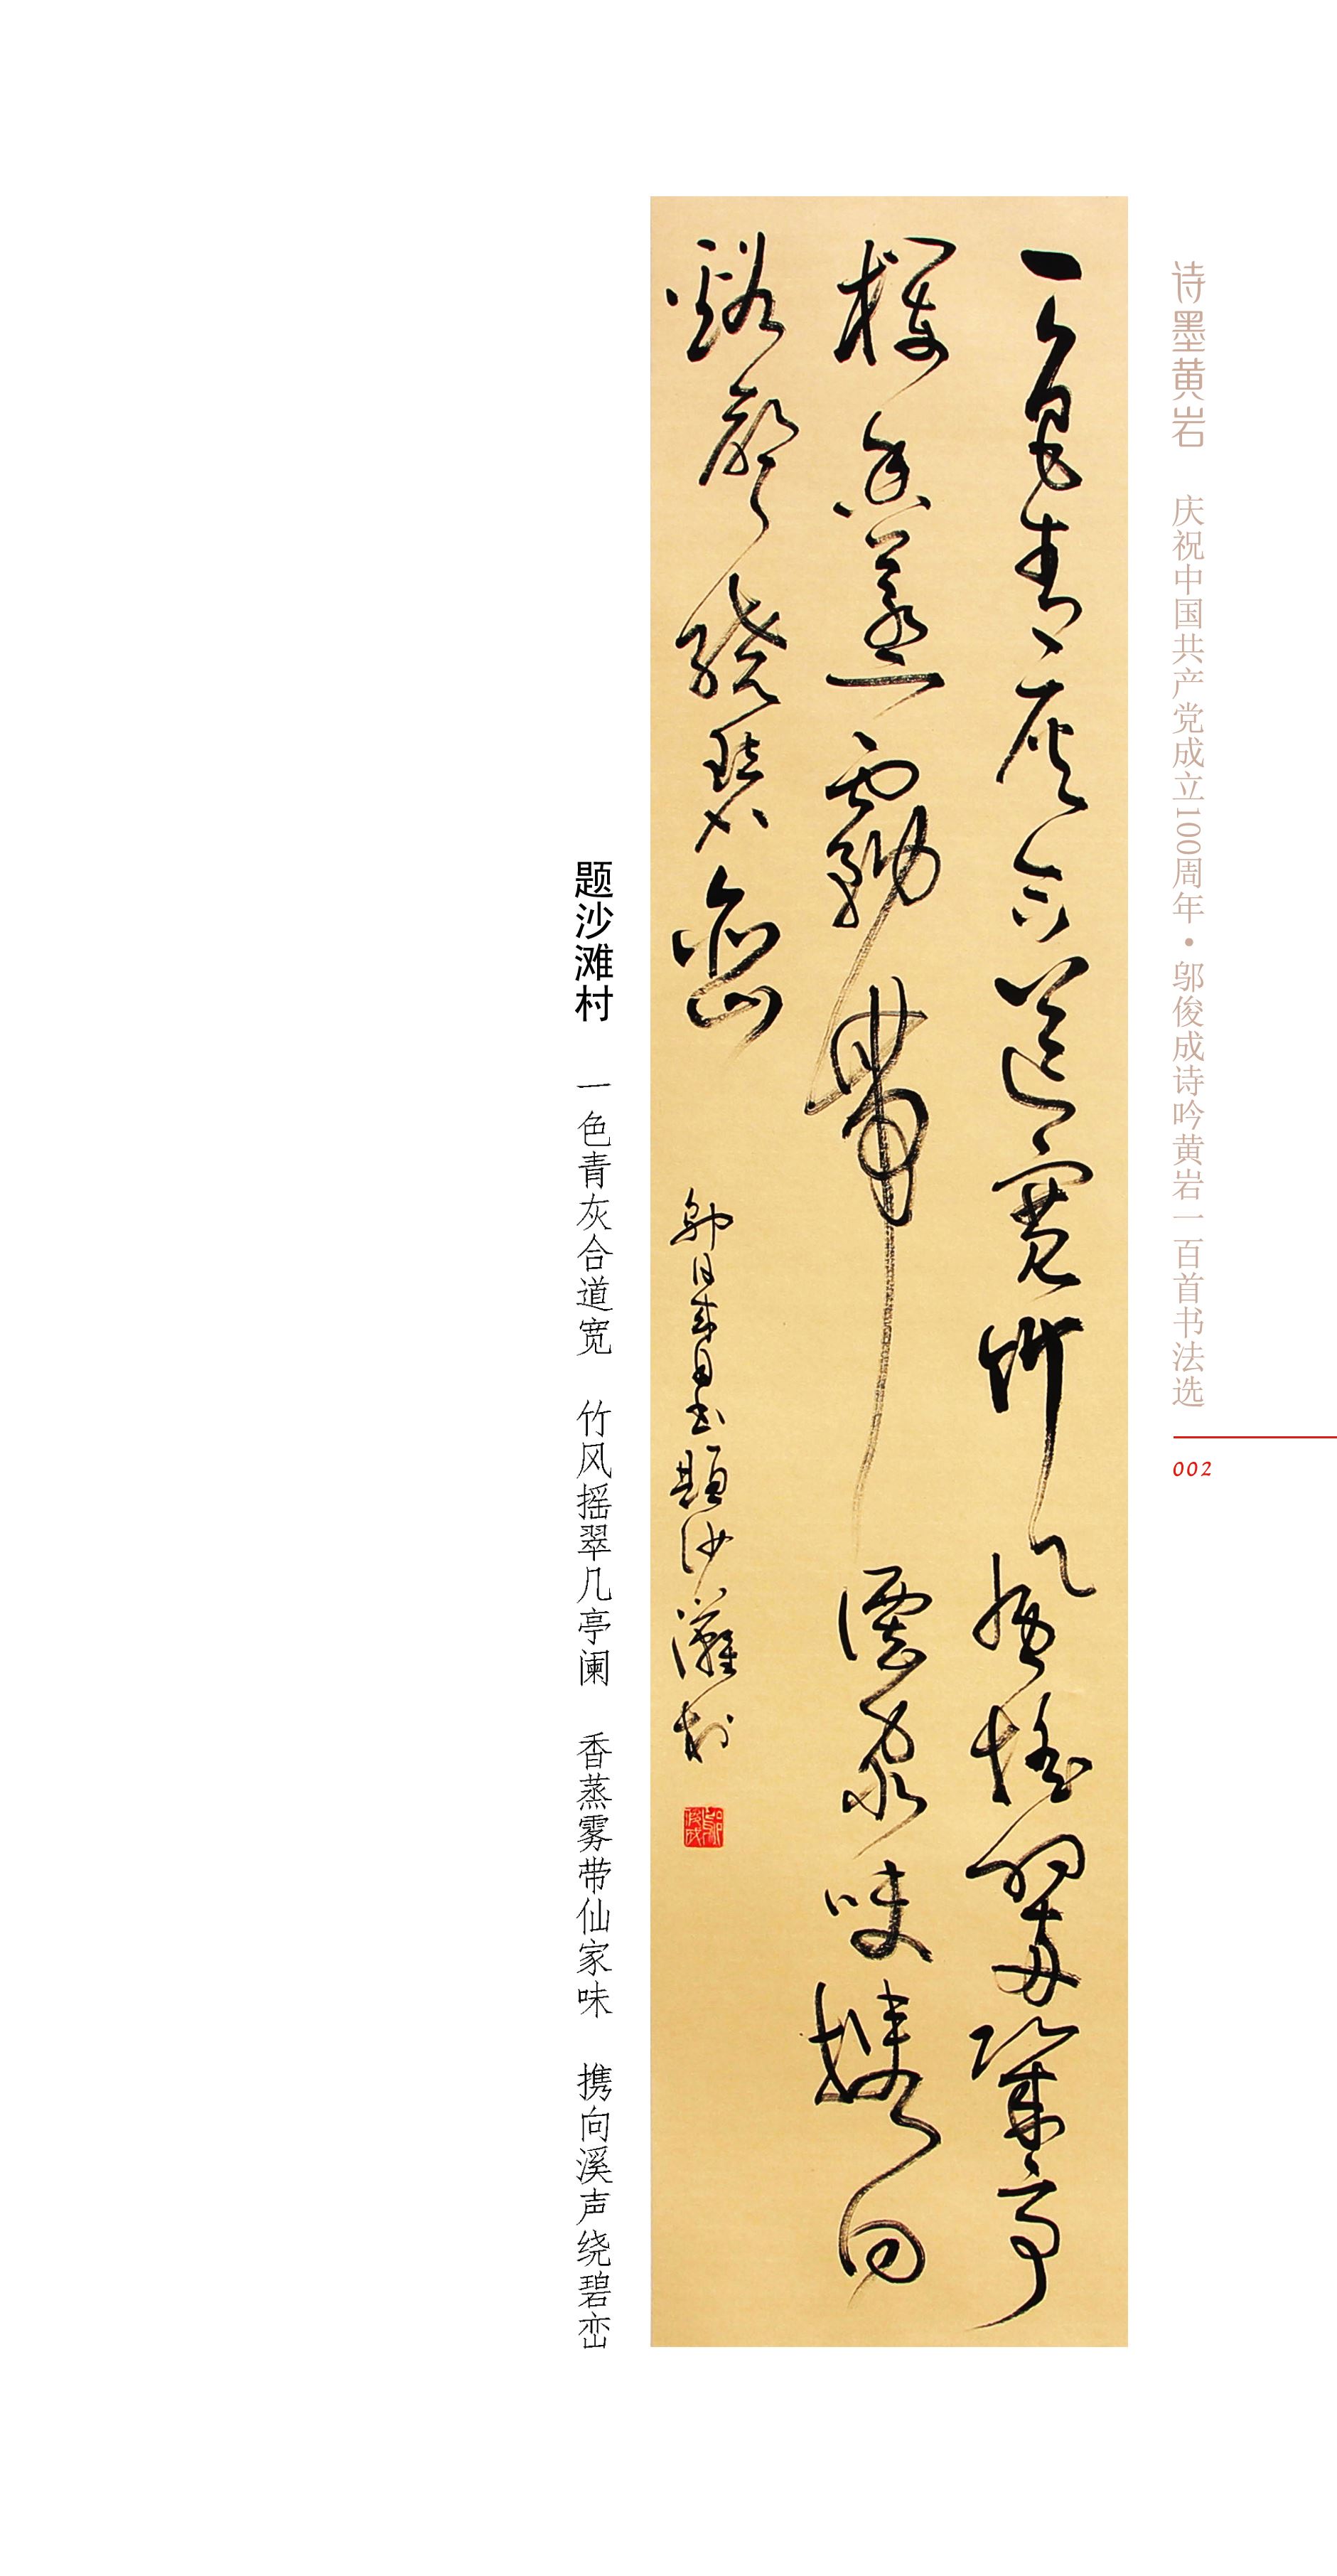 诗墨黄岩 庆祝中国共产党成立100周年·邬俊成诗吟黄岩一百首书法选
002
一色青灰合道寬竹風搖翠幾亭
欄香蒸霧帶僊家味攜向
谿聲繞碧巒
自書題沙灘村
题沙滩村 一色青灰合道宽 竹风摇翠几亭阑 香蒸雾带仙家味 携向溪声绕碧峦